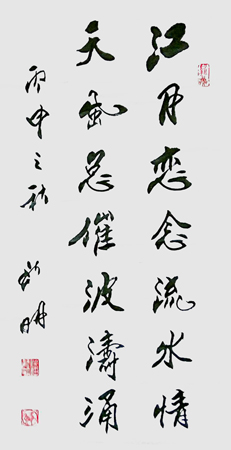 江月恋念流水情
天风总催波涛涌
丙申之秋